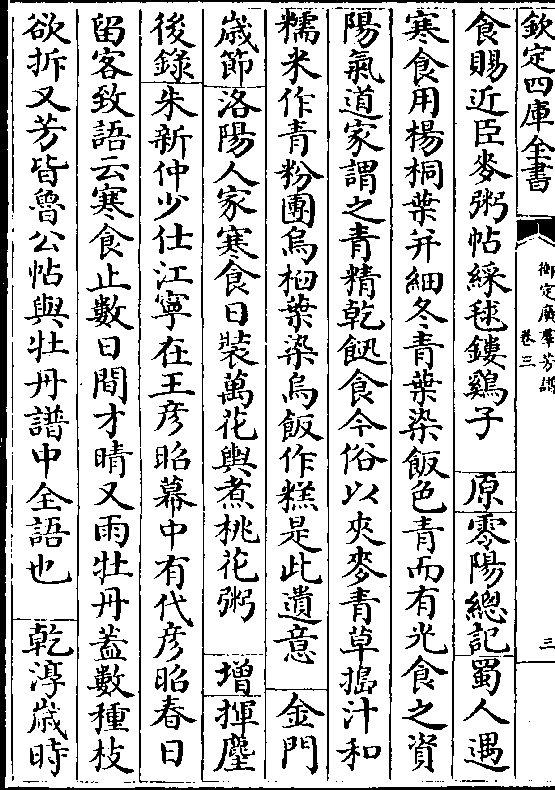 欽定四庫全書
御定廣羣芳譜
卷三
三
食賜近臣麥粥帖綵毬鏤鷄子　原零陽總記蜀人遇
寒食用楊桐葉并細冬青葉染飯色青而有光食之資
陽氣道家謂之青精乾飿食今俗以夾麥青草搗汁和
糯米作青粉團烏桕葉染烏飯作糕是此遺意　金門
歲節洛陽人家寒食日裝萬花輿煮桃花粥　增揮麈
後錄朱新仲少仕江寧在王彥昭幕中有代彥昭春日
留客致語云寒食止數日間才晴又雨牡丹蓋數種枝
欲拆又芳皆魯公帖與牡丹譜中全語也　乾淳歲時